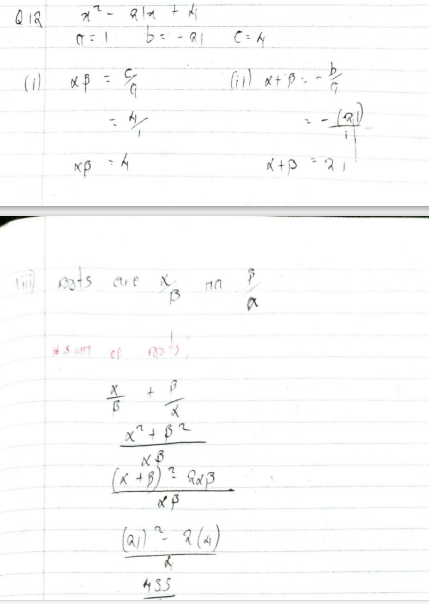 Q12 x² - 21x + 4
a = 1 b = -21 c = 4
(i) αβ = c/a (ii) α+β = -b/a
= 4/1 = -(-21)/1
αβ = 4 α+β = 21
(iii) roots are α/β β/α
sum of roots:
α/β + β/α
α² + β²/αβ
(α + β)² - 2αβ/αβ
(21)² - 2(4)/4
433